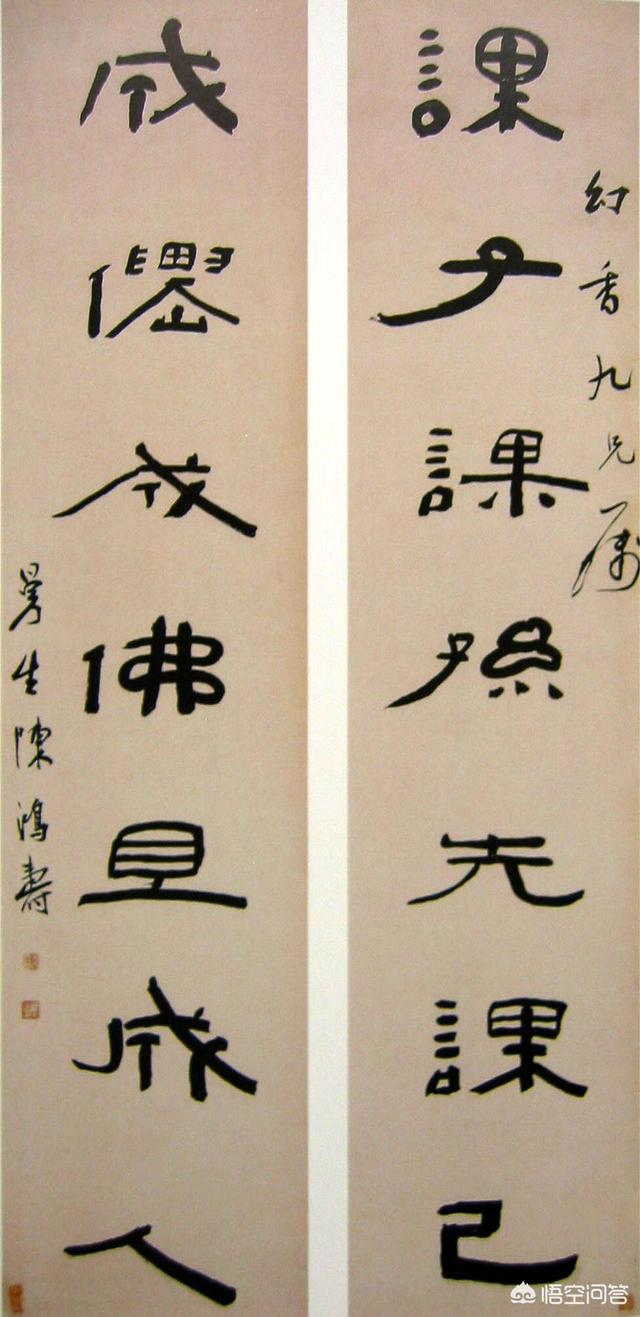 幻香九兄屬
課子課孫先課己
成僊成佛且成人
曼生陳鴻壽
悟空问答